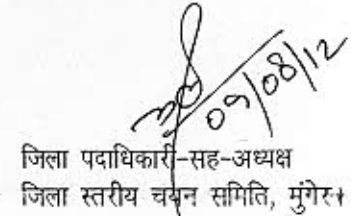 09/08/12
जिला पदाधिकारी-सह-अध्यक्ष
जिला स्तरीय चयन समिति, मुंगेर।